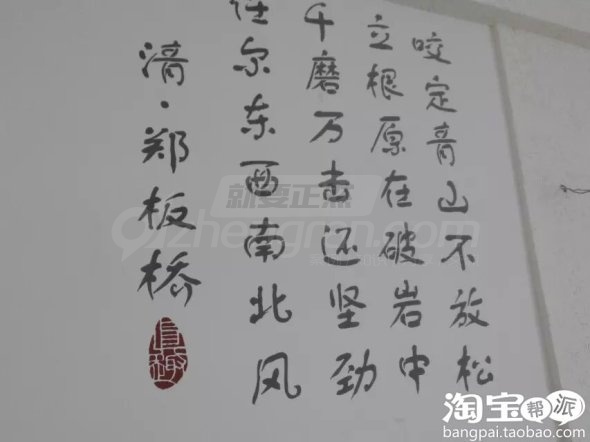 咬定青山不放松
立根原在破岩中
千磨万击还坚劲
任尔东西南北风
清·郑板桥
就要正燃
淘宝帮派
bangpai.taobao.com